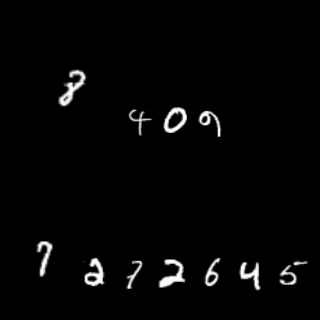 8
409
7
272645